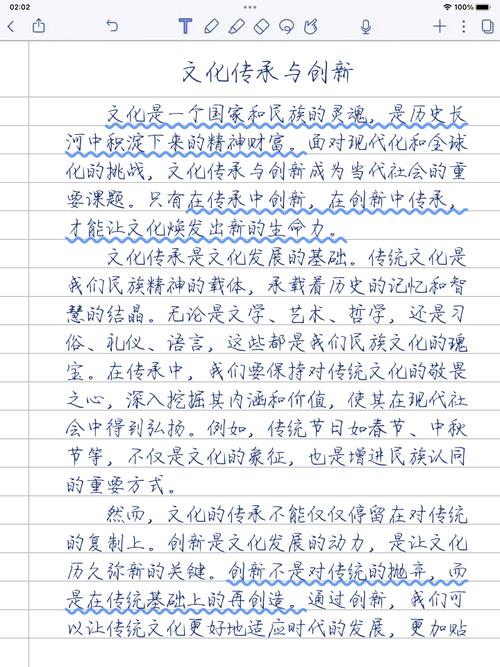 02:02
100%
文化传承与创新
文化是一个国家和民族的灵魂，是历史长
河中积淀下来的精神财富。面对现代化和全球
化的挑战，文化传承与创新成为当代社会的重
要课题。只有在传承中创新，在创新中传承，
才能让文化焕发出新的生命力。
文化传承是文化发展的基础。传统文化是
我们民族精神的载体，承载着历史的记忆和智
慧的结晶。无论是文学、艺术、哲学，还是习
俗、礼仪、语言，这些都是我们民族文化的瑰
宝。在传承中，我们要保持对传统文化的敬畏
之心，深入挖掘其内涵和价值，使其在现代社
会中得到弘扬。例如，传统节日如春节、中秋
节等，不仅是文化的象征，也是增进民族认同
的重要方式。
然而，文化的传承不能仅仅停留在对传统
的复制上。创新是文化发展的动力，是让文化
历久弥新的关键。创新不是对传统的抛弃，而
是在传统基础上的再创造。通过创新，我们可
以让传统文化更好地适应时代的发展，更加贴